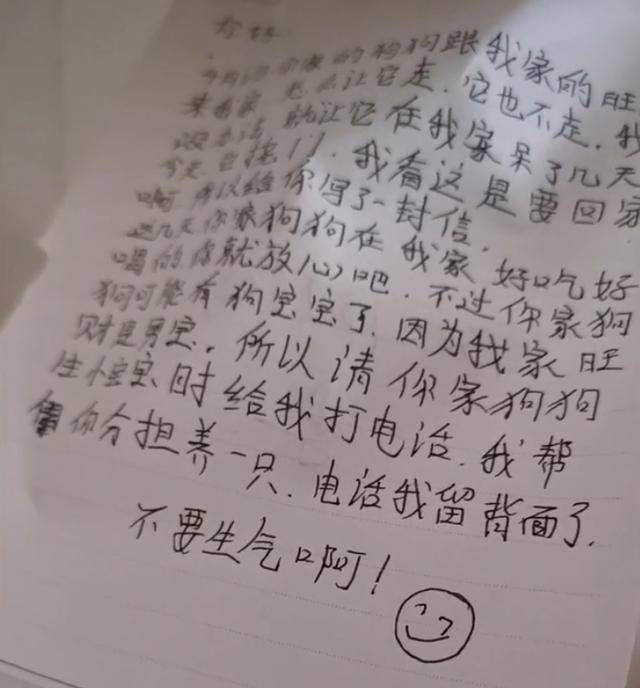 你好
的狗狗跟我家的旺
来我家 让它走.它也不走.我
没办法 就让它在我家呆了几天
今天它挠门.我看这是要回家
啊 所以给你写了一封信.
这几天你家狗狗在我家 好吃好
喝的你就放心吧.不过你家狗
狗可能有狗宝宝了.因为我家旺
财是男宝.所以请你家狗狗
生小宝宝时给我打电话.我帮
你分担养一只.电话我留背面了.
不要生气啊!